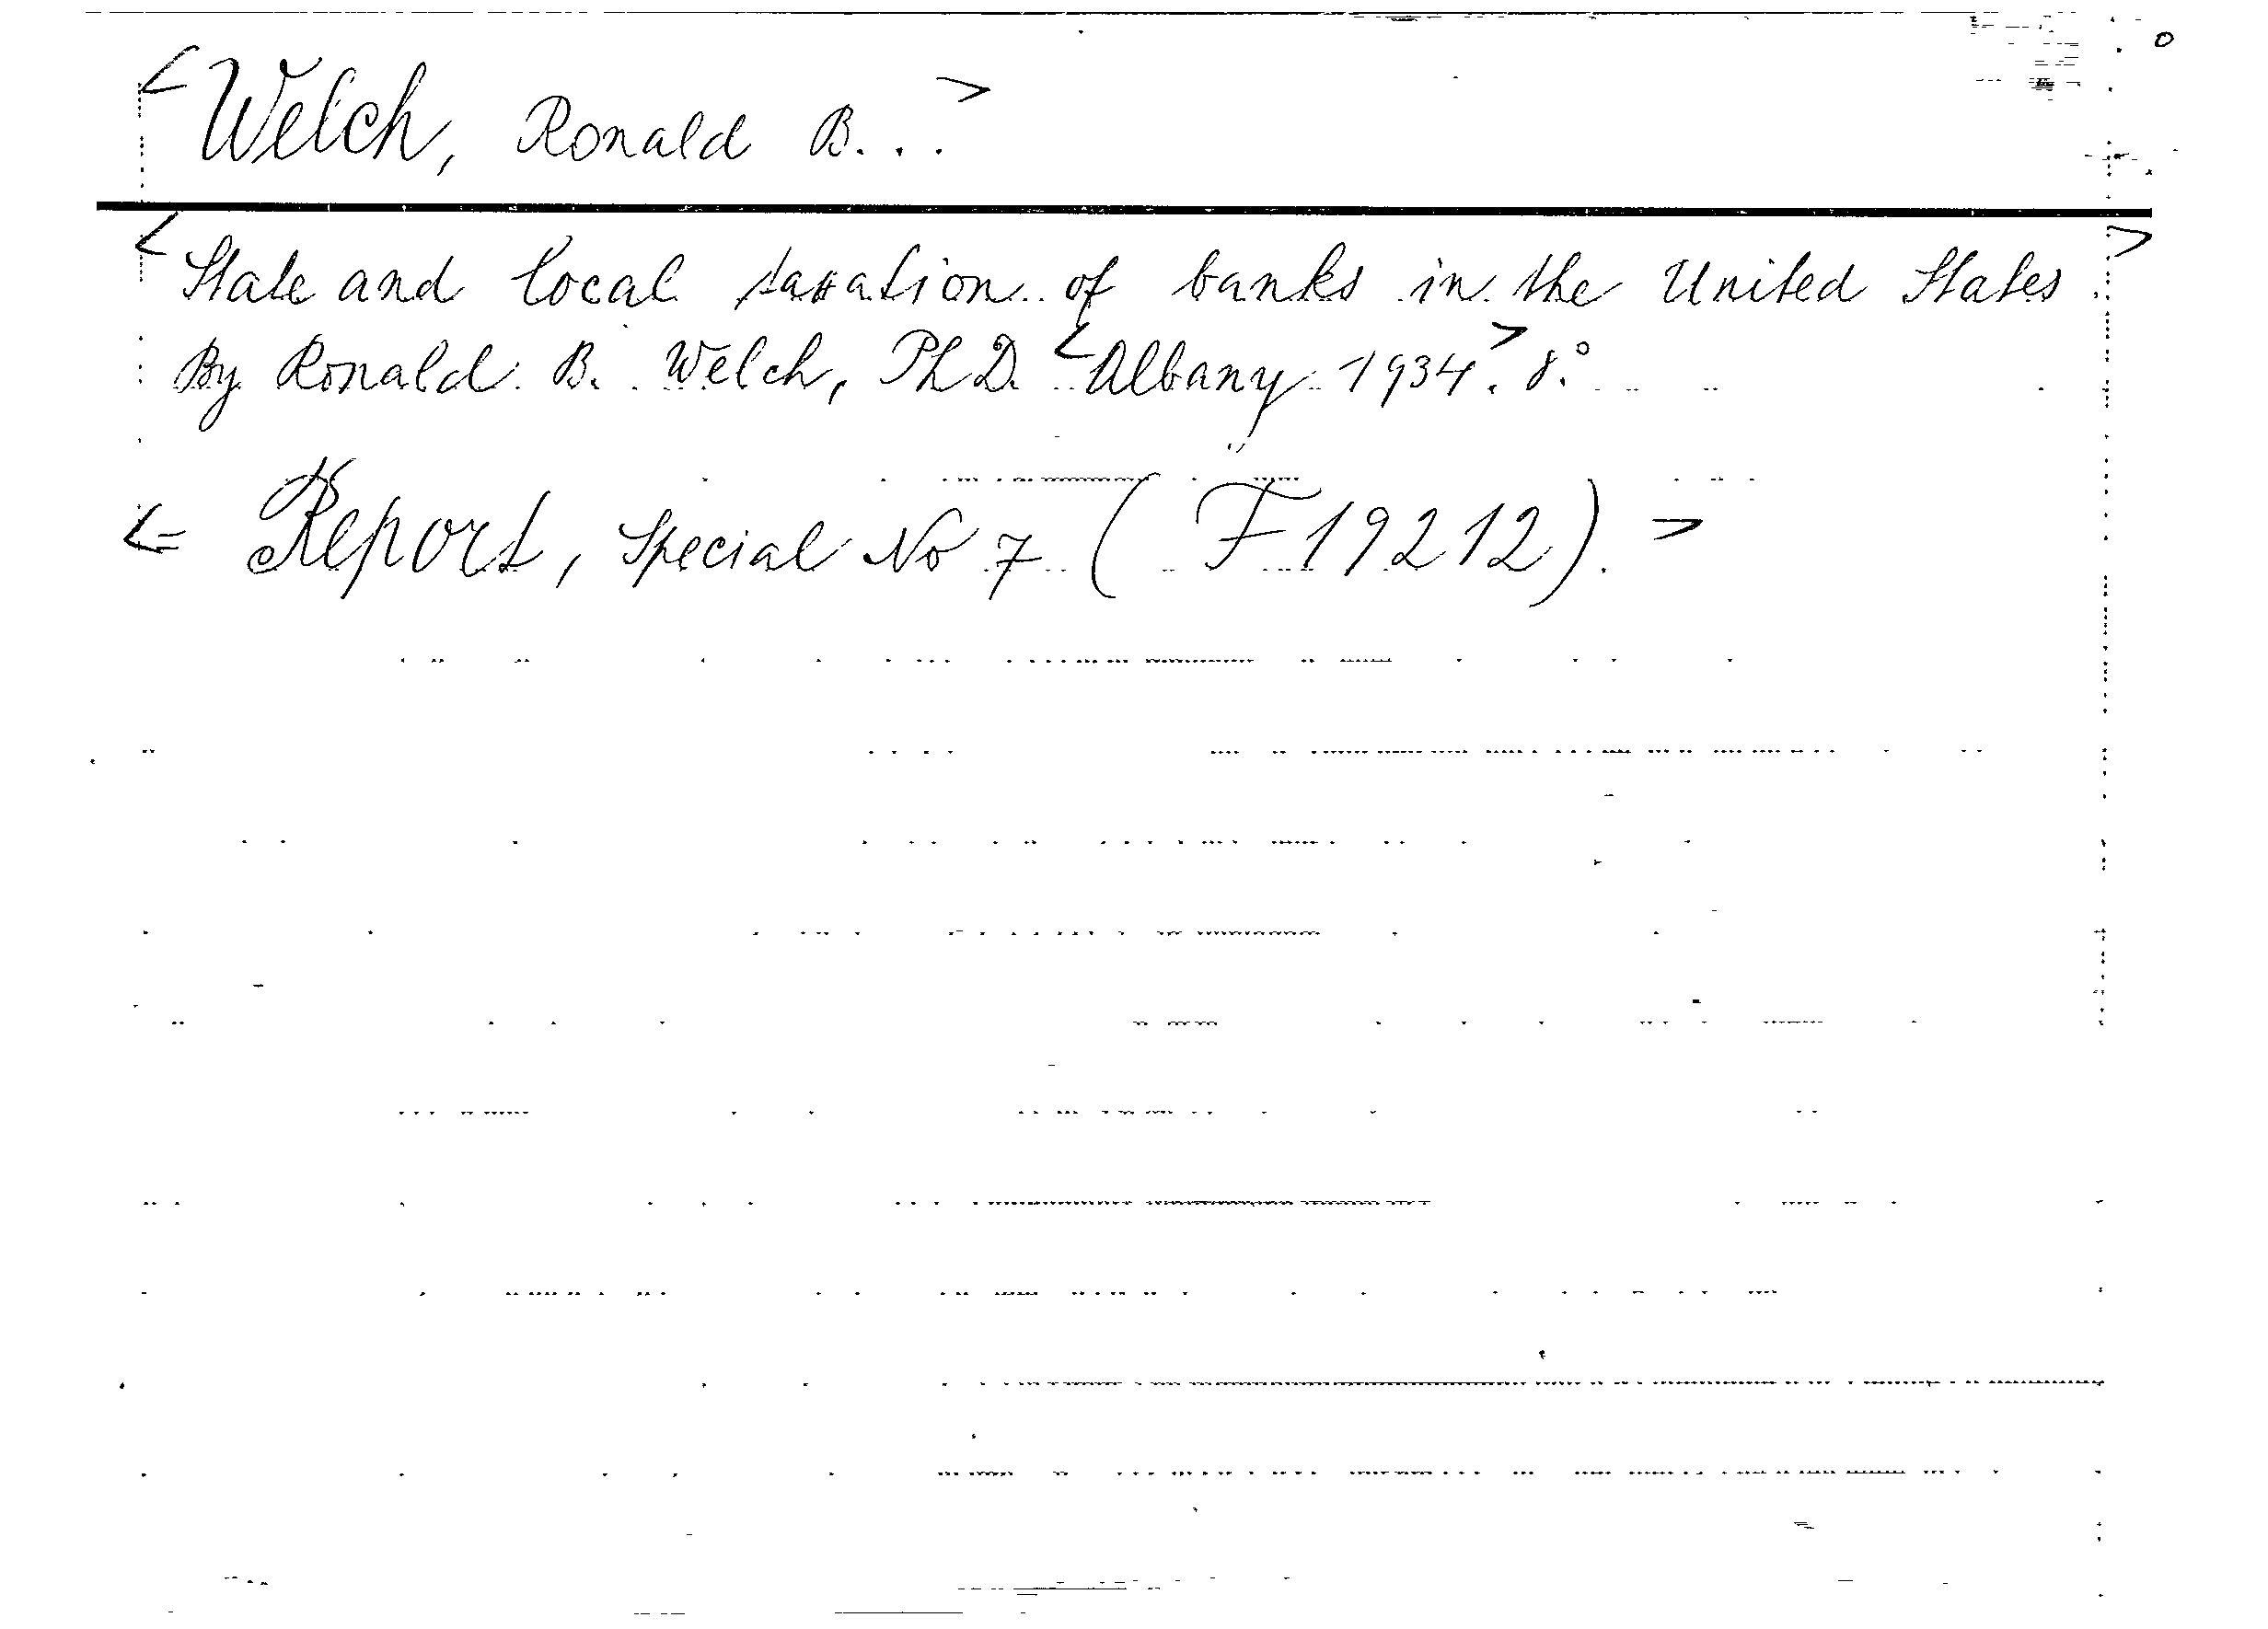 <Welch, Ronald B...>
<State and local taxation of banks in the United States>
By Ronald B. Welch, Ph D. <Albany 1934>. 8.°
<= Report, Special No 7 (F 19212). >